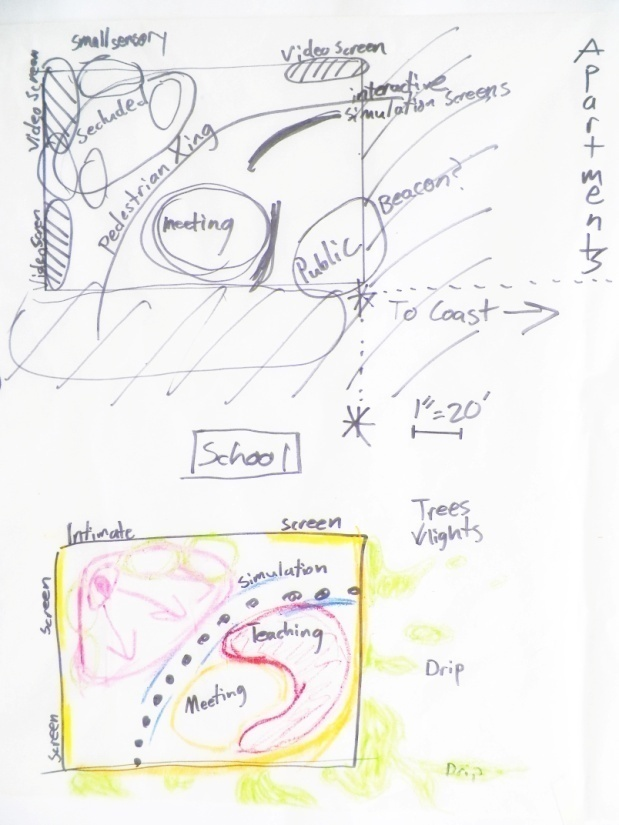 small sensory
Video Screen
Video Screen
Secluded
interactive
simulation screens
Pedestrian Xing
meeting
Public
Beacon?
Apartments
Video Screen
To Coast
1"=20'
School
Trees
lights
Intimate
screen
screen
simulation
Teaching
Meeting
Drip
screen
Drip